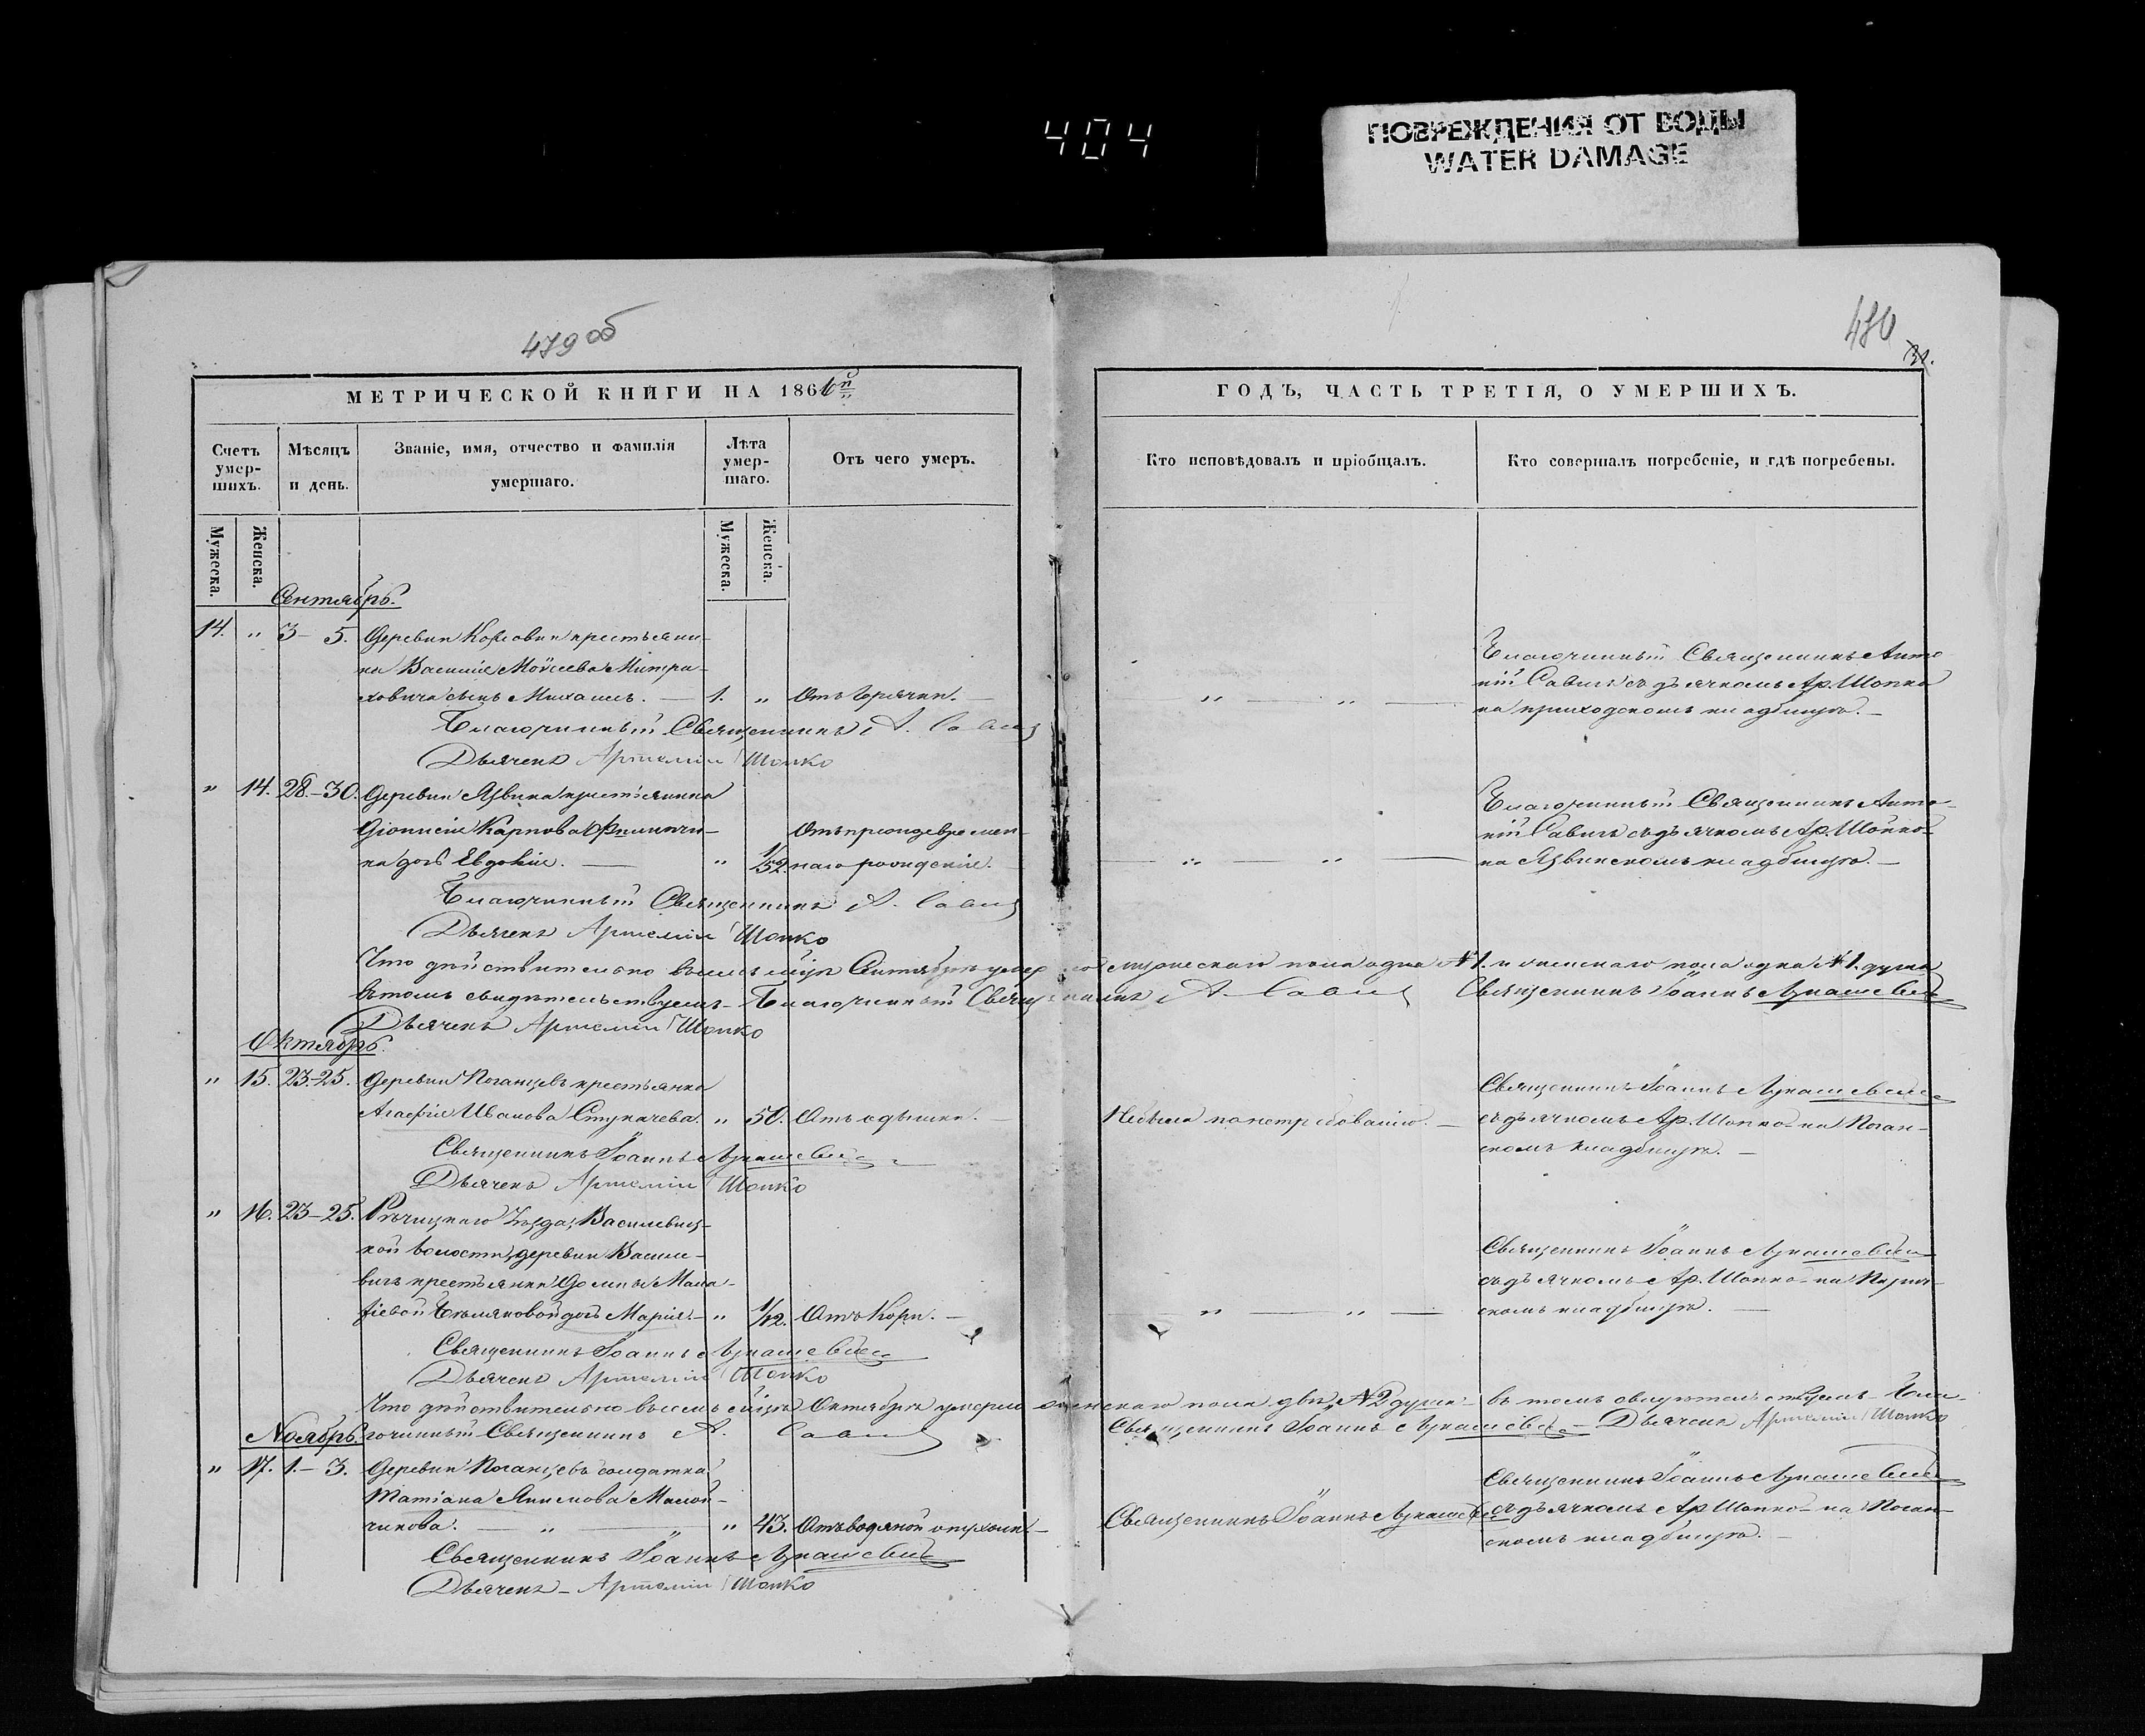 404
ПОВРЕЖДЕНИЯ ОТ ВОДЫ
WATER DAMAGE
479 об
480
31.
МЕТРИЧЕСКОЙ КНИГИ НА 1866й
ГОДЪ, ЧАСТЬ ТРЕТІЯ, О УМЕРШИХЪ.
Счетъ умер-шихъ.
Мѣсяцъ и день.
Званіе, имя, отчество и фамилія умершаго.
Лѣта умер-шаго.
Отъ чего умеръ.
Кто исповѣдовалъ и пріобщалъ.
Кто совершалъ погребеніе, и гдѣ погребены.
Мужеска.
Женска.
Мужеска.
Женска.
Сентябрь.
14. " 3 – 5. Деревни крестьяни-
на Василія Моѵсеева Митра-
ховича сынъ Михаилъ. — 1. " Отъ горячки. —
" — " —
Благочинный Священникъ Анто
ній Савичъ съ дьячкомъ Ар. Шопко
на приходскомъ кладбищѣ. —
Благочинный Священникъ А. Савичъ
Дьячекъ Артемій Шопко
" 14. 28. – 30. Деревни Язвина крестьянина
Діонисія Карпова
дочь Евдокія. — " 1/52. Отъ преждевремен-
наго рожденія.
— " — " —
Благочинный Священникъ Анто-
ній Савичъ съ дьячкомъ Ар. Шопко
на Язвинскомъ кладбищѣ. —
Благочинный Священникъ А. Савичъ
Дьячекъ Артемій Шопко
Что дѣйствительно въ семъ мѣсяцѣ Сентябрѣ умерло мужескаго пола одна №1. и женскаго пола одна №1. душа
въ томъ свидѣтельствуемъ – Благочинный Священникъ А. Савичъ Священникъ Іоаннъ Лукашевичъ
Дьячекъ Артемій Шопко
Октябрь.
" 15. 23–25. Деревни Поганцевъ крестьянка
Агафія Иванова Стукачева. " 50. Отъ одышки. —
Священникъ Іоаннъ Лукашевичъ
съ дьячкомъ Ар. Шопко – на Поган-
скомъ кладбищѣ. —
Священникъ Іоаннъ Лукашевичъ
Дьячекъ Артемій Шопко
" 16. 23–25. Рѣчицкаго Уѣзда, Василевиц-
кой волости, деревни Васле-
вичъ крестьянки Домны
дочь Марія. — " 1/12. Отъ Кори. —
— " — " —
Священникъ Іоаннъ Лукашевичъ
съ дьячкомъ Ар. Шопко – на
скомъ кладбищѣ. —
Священникъ Іоаннъ Лукашевичъ
Дьячекъ Артемій Шопко
Что дѣйствительно въ семъ мѣсяцѣ Октябрѣ умерли женскаго пола двѣ №2 души – въ томъ свидѣтельствуемъ – Бла-
гочинный Священникъ А. Савичъ Священникъ Іоаннъ Лукашевичъ – Дьячекъ Артемій Шопко
Ноябрь.
" 17. 1. – 3. Деревни Поганцевъ солдатка
Татіана Якимова
— " — " 43. Отъ водяной опухоли. —
Священникъ Іоаннъ Лукашевичъ
Священникъ Іоаннъ Лукашевичъ
съ дьячкомъ Ар Шопко – на Поган-
скомъ кладбищѣ. —
Священникъ Іоаннъ Лукашевичъ
Дьячекъ – Артемій Шопко